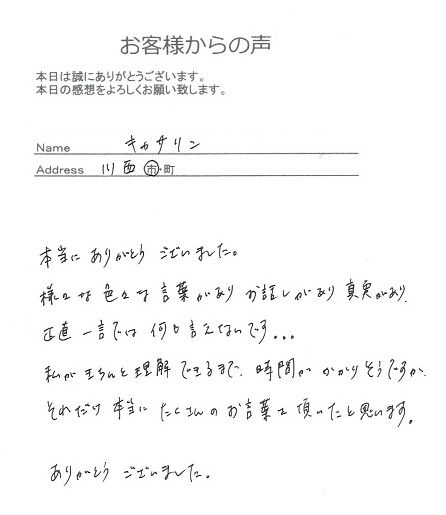 お客様からの声
本日は誠にありがとうございます。
本日の感想をよろしくお願い致します。
Name キャサリン
Address 川西 市・町
本当に ありがとう ございました。
様々な 色々な 言葉があり お話しがあり 真実があり
正直 一言では 何も 言えないです...
私が きちんと 理解 できるまで、時間が かかりそうですが、
それだけ 本当に たくさんの お言葉を 頂いたと 思います。
ありがとう ございました。